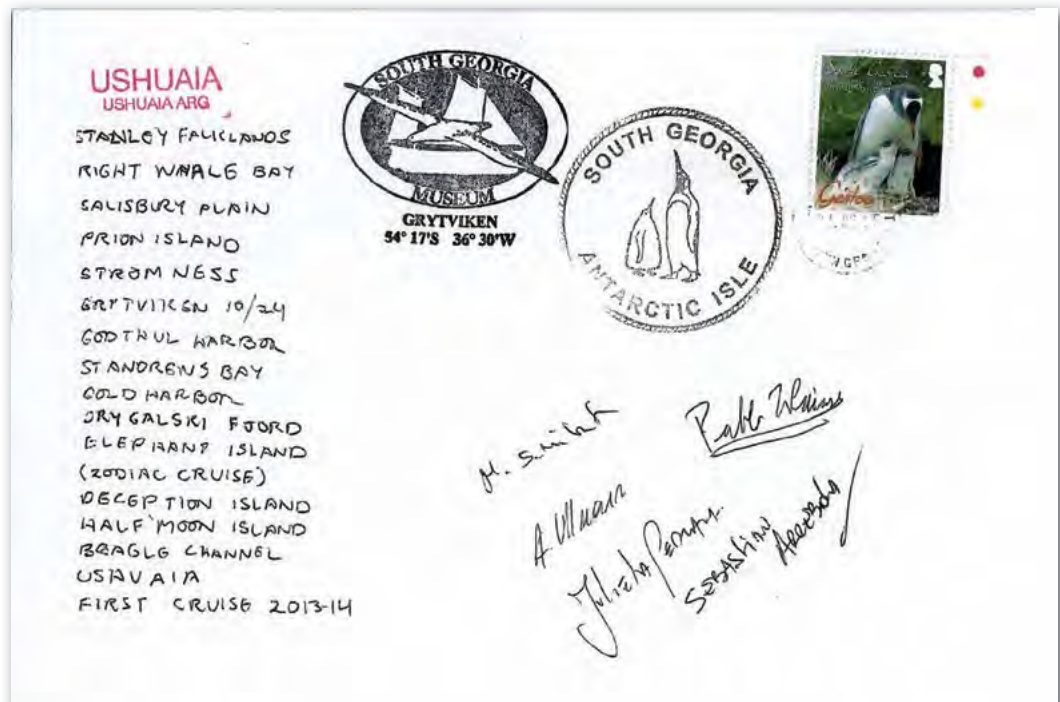 USHUAIA
USHUAIA ARG
STANLEY FALKLANDS
RIGHT WHALE BAY
SALISBURY PLAIN
PRION ISLAND
STROMNESS
GRYTVIKEN 10/24
GODTHUL HARBOR
ST ANDREWS BAY
GOLD HARBOR
DRYGALSKI FJORD
ELEPHANT ISLAND
(ZODIAC CRUISE)
DECEPTION ISLAND
HALF MOON ISLAND
BEAGLE CHANNEL
USHUAIA
FIRST CRUISE 2013-14
SOUTH GEORGIA
MUSEUM
GRYTVIKEN
54° 17'S 36° 30'W
SOUTH GEORGIA
ANTARCTIC ISLE
Gentoo
SEBASTIAN